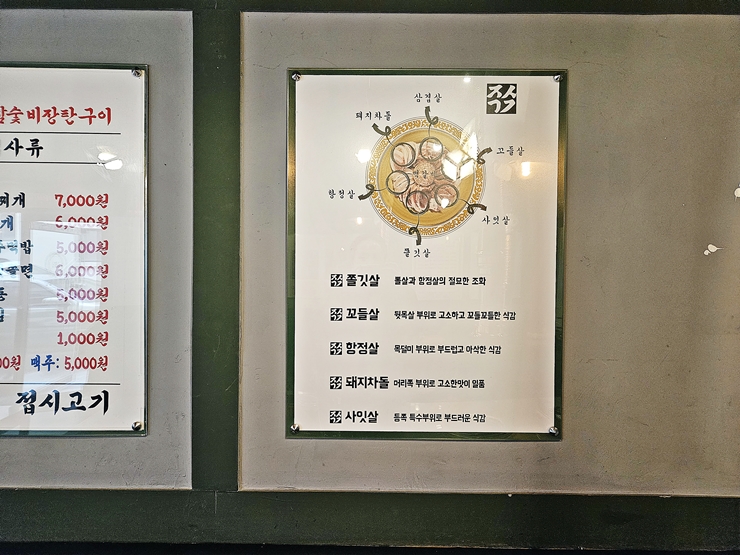 참숯 비장탄구이
사류
찌개 7,000원
개 6,000원
먹밥 5,000원
물면 6,000원
5,000원
5,000원
1,000원
맥주: 5,000원
접시고기
삼겹살
돼지차돌
꼬들살
항정살
사잇살
쫄깃살
쫄깃살 볼살과 항정살의 절묘한 조화
꼬들살 뒷목살 부위로 고소하고 꼬들꼬들한 식감
항정살 목덜미 부위로 부드럽고 아삭한 식감
돼지차돌 머리쪽 부위로 고소한맛이 일품
사잇살 등쪽 특수부위로 부드러운 식감